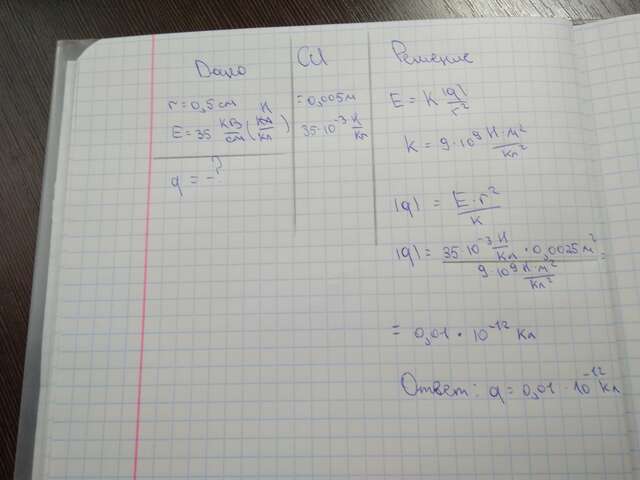 Дано
r = 0,5 см
E = 35 кВ/см (Н/Кл)
q = - ?
СИ
= 0,005 м
35·10⁻³ Н/Кл
Решение
E = K |q|/r²
K = 9·10⁹ Н·м²/Кл²
|q| = E·r²/K
|q| = 35·10⁻³ Н/Кл · 0,0025 м² / 9·10⁹ Н·м²/Кл² =
= 0,01 · 10⁻¹² Кл
Ответ: q = 0,01·10⁻¹² Кл